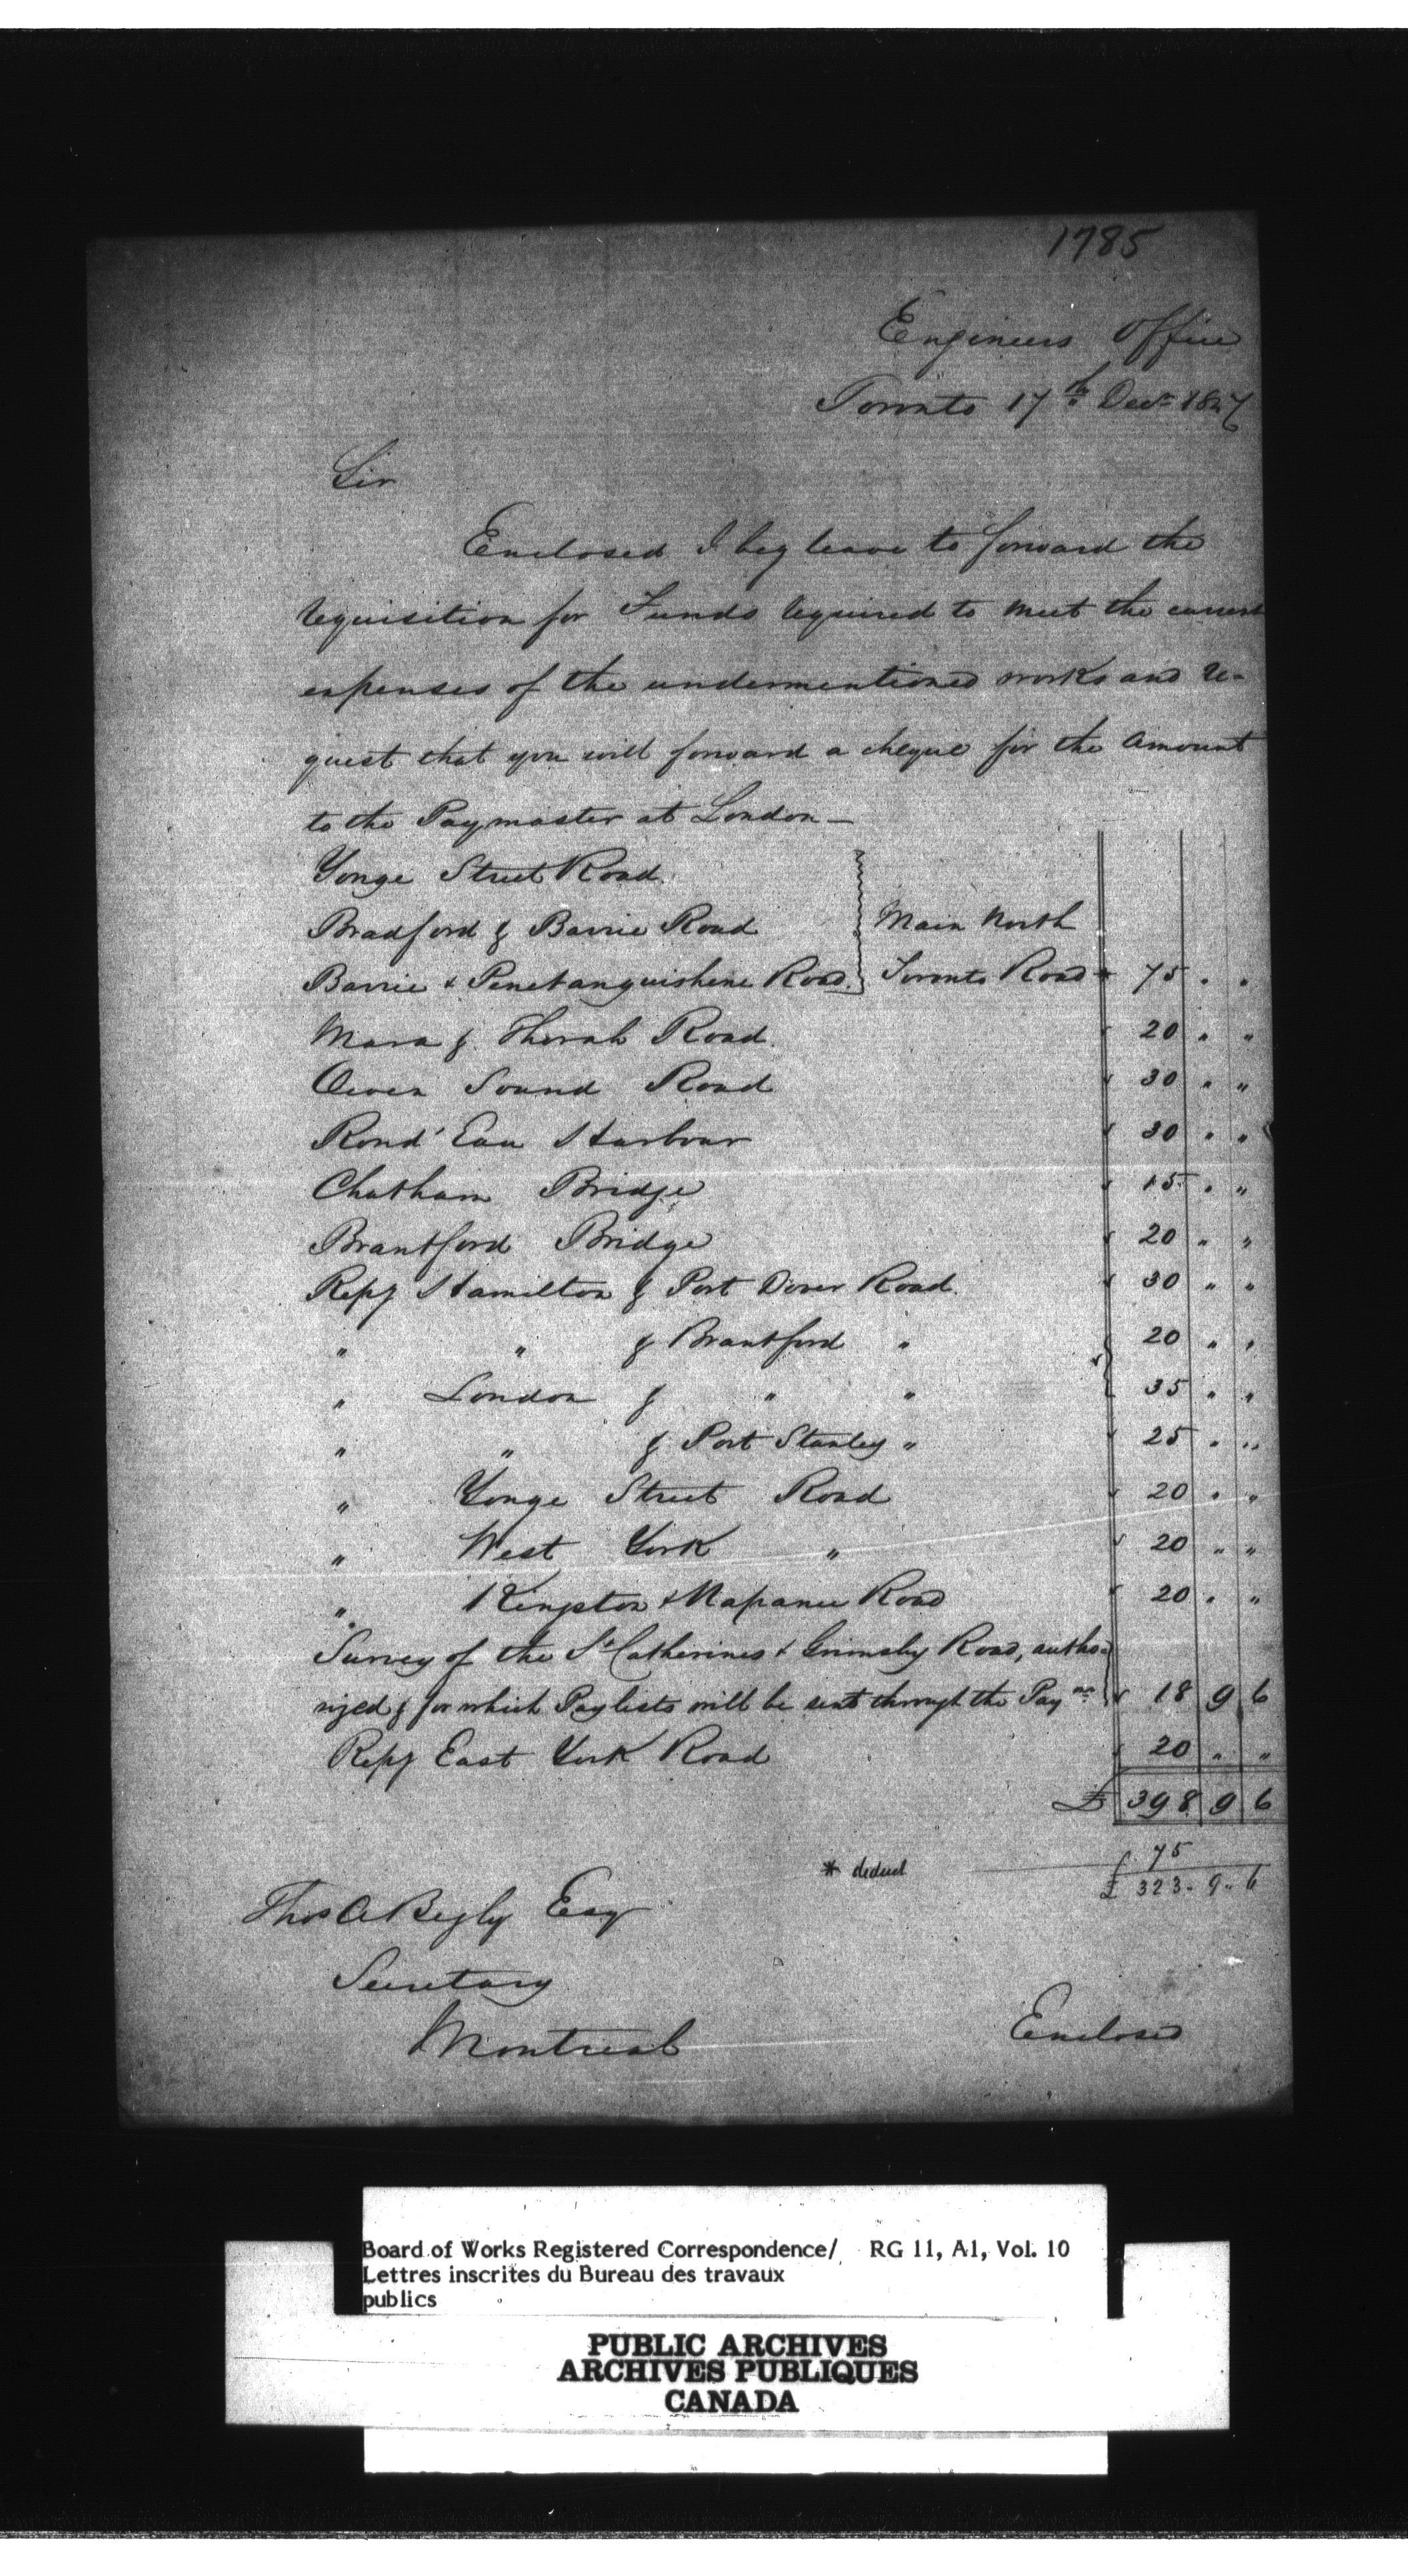 1785
Engineers Office
Toronto 17th Decr 1847
Sir
Enclosed I beg leave to forward the
requisition for Funds required to meet the current
expenses of the undermentioned works and re-
quest that you will forward a cheque for the Amount
to the Paymaster at London —
Yonge Street Road.
Bradford & Barrie Road Main North
Barrie & Penetanguishene Road. Toronto Road * 75 " "
Mara & Thorah Road. 20 " "
Owen Sound Road 30 " "
Rond' Eau Harbour 30 " "
Chatham Bridge 15 " "
Brantford Bridge 20 " "
Repg Hamilton & Port Dover Road. 30 " "
" " & Brantford " 20 " "
" London & " " 35 " "
" " & Port Stanley " 25 " "
" Yonge Street Road 20 " "
" West York " 20 " "
" Kingston & Napanee Road 20 " "
Survey of the St Catherines & Grimsby Road, autho-
rized & for which Paylists will be sent through the Paymr 18 9 6
Repg East York Road 20 " "
£ 398 9 6
* deduct £ 75
£ 323 " 9 " 6
Thos A Begly Esq
Secretary
Montreal
Enclosed
Board of Works Registered Correspondence/ RG 11, A1, Vol. 10
Lettres inscrites du Bureau des travaux
publics
PUBLIC ARCHIVES
ARCHIVES PUBLIQUES
CANADA